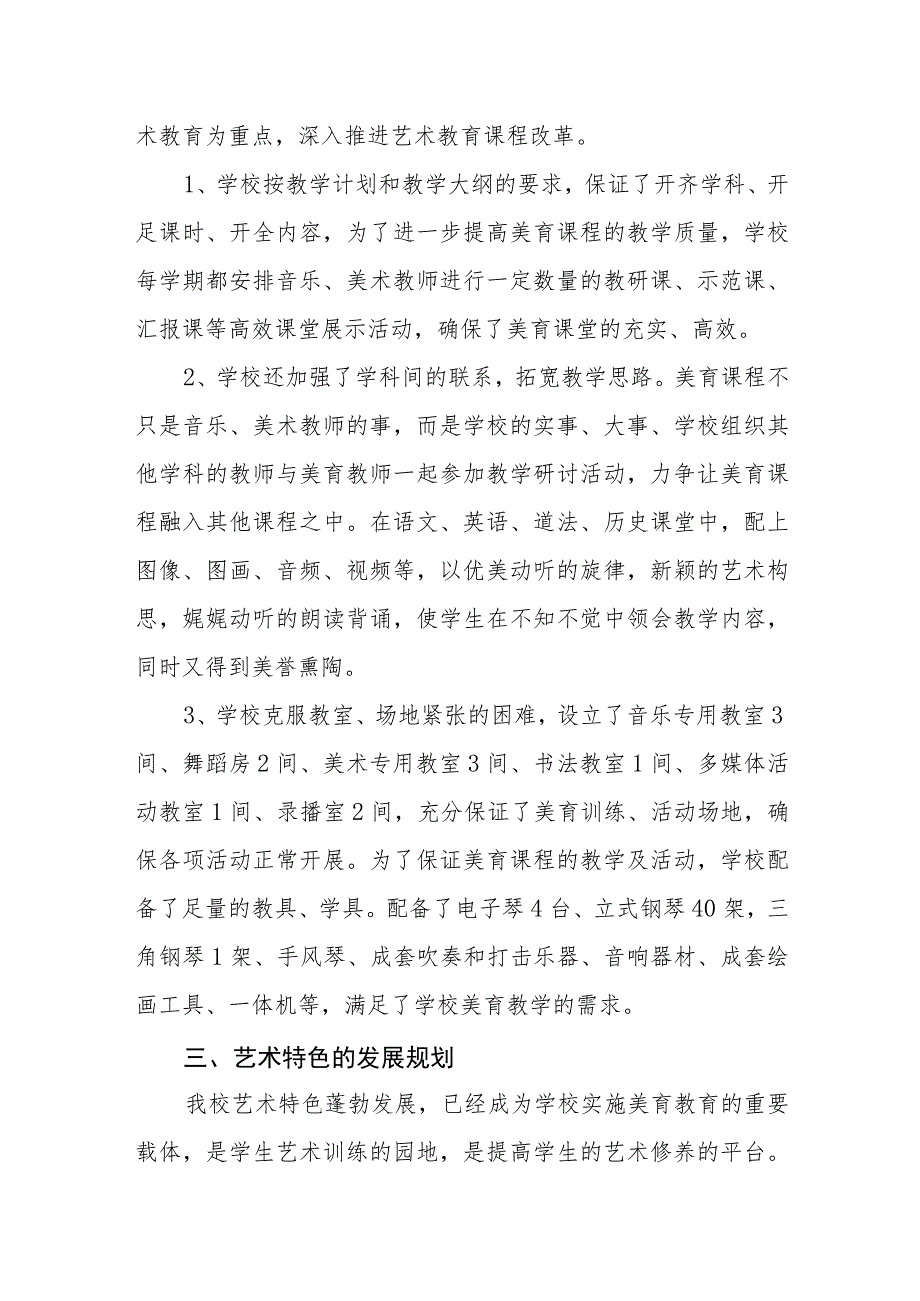 术教育为重点，深入推进艺术教育课程改革。
1、学校按教学计划和教学大纲的要求，保证了开齐学科、开
足课时、开全内容，为了进一步提高美育课程的教学质量，学校
每学期都安排音乐、美术教师进行一定数量的教研课、示范课、
汇报课等高效课堂展示活动，确保了美育课堂的充实、高效。
2、学校还加强了学科间的联系，拓宽教学思路。美育课程不
只是音乐、美术教师的事，而是学校的实事、大事、学校组织其
他学科的教师与美育教师一起参加教学研讨活动，力争让美育课
程融入其他课程之中。在语文、英语、道法、历史课堂中，配上
图像、图画、音频、视频等，以优美动听的旋律，新颖的艺术构
思，娓娓动听的朗读背诵，使学生在不知不觉中领会教学内容，
同时又得到美誉熏陶。
3、学校克服教室、场地紧张的困难，设立了音乐专用教室 3
间、舞蹈房 2 间、美术专用教室 3 间、书法教室 1 间、多媒体活
动教室 1 间、录播室 2 间，充分保证了美育训练、活动场地，确
保各项活动正常开展。为了保证美育课程的教学及活动，学校配
备了足量的教具、学具。配备了电子琴 4 台、立式钢琴 40 架，三
角钢琴 1 架、手风琴、成套吹奏和打击乐器、音响器材、成套绘
画工具、一体机等，满足了学校美育教学的需求。
三、艺术特色的发展规划
我校艺术特色蓬勃发展，已经成为学校实施美育教育的重要
载体，是学生艺术训练的园地，是提高学生的艺术修养的平台。